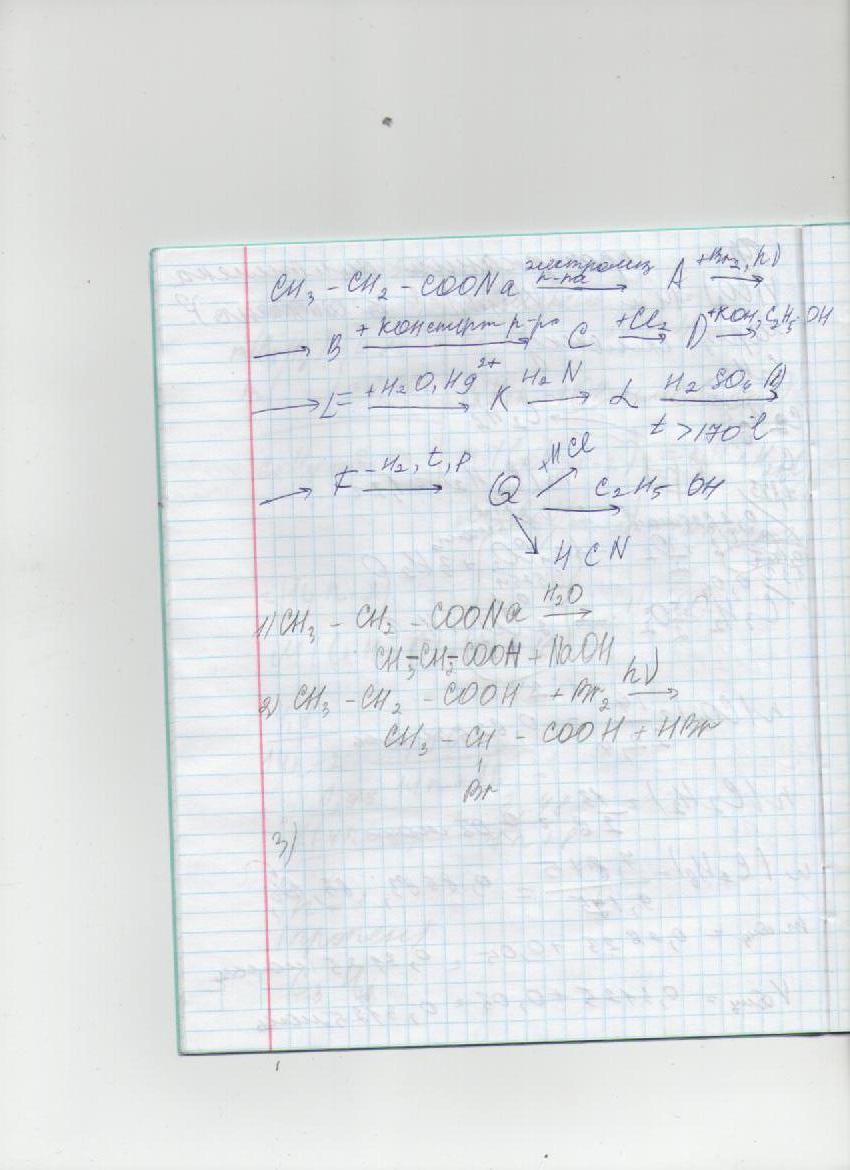 CH₃ – CH₂ – COONa электролиз р-ра → A +Br₂, hν →
→ B + → C +Cl₂ → D +KOH, C₂H₅OH →
→ E +H₂O, Hg²⁺ → K H₂ N → L H₂SO₄ →
t >170°C
→ F –H₂, t, p → Q +HCl
C₂H₅ OH
HCN
1) CH₃ – CH₂ – COONa H₂O →
CH₃–CH₂–COOH + NaOH
2) CH₃ – CH₂ – COOH + Br₂ hν →
CH₃ – CH – COOH + HBr
Br
3)